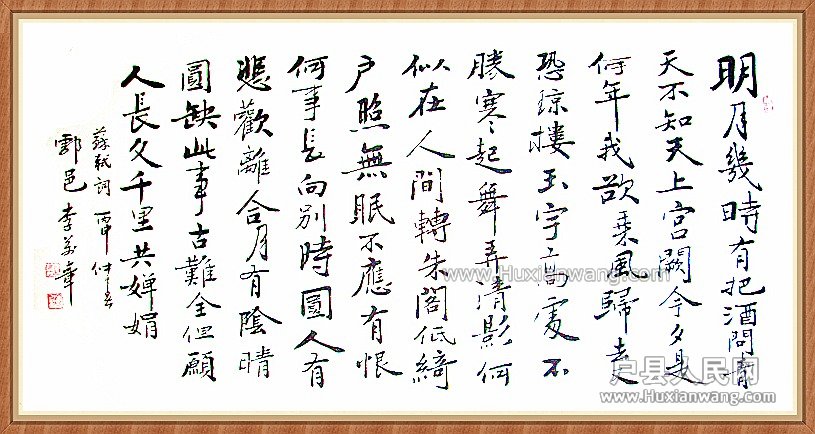 明月幾時有把酒問青
天不知天上宫闕今夕是
何年我欲乘風歸去
恐琼樓玉宇高處不
勝寒起舞弄清影何
似在人間轉朱閣低綺
户照無眠不應有恨
何事長向别時圓人有
悲歡離合月有陰晴
圓缺此事古難全但願
人長久千里共嬋娟
蘇軾詞 丙申仲
鄠邑 李萬章
www.Huxianwang.com
户县人民网
www.Huxianwang.com